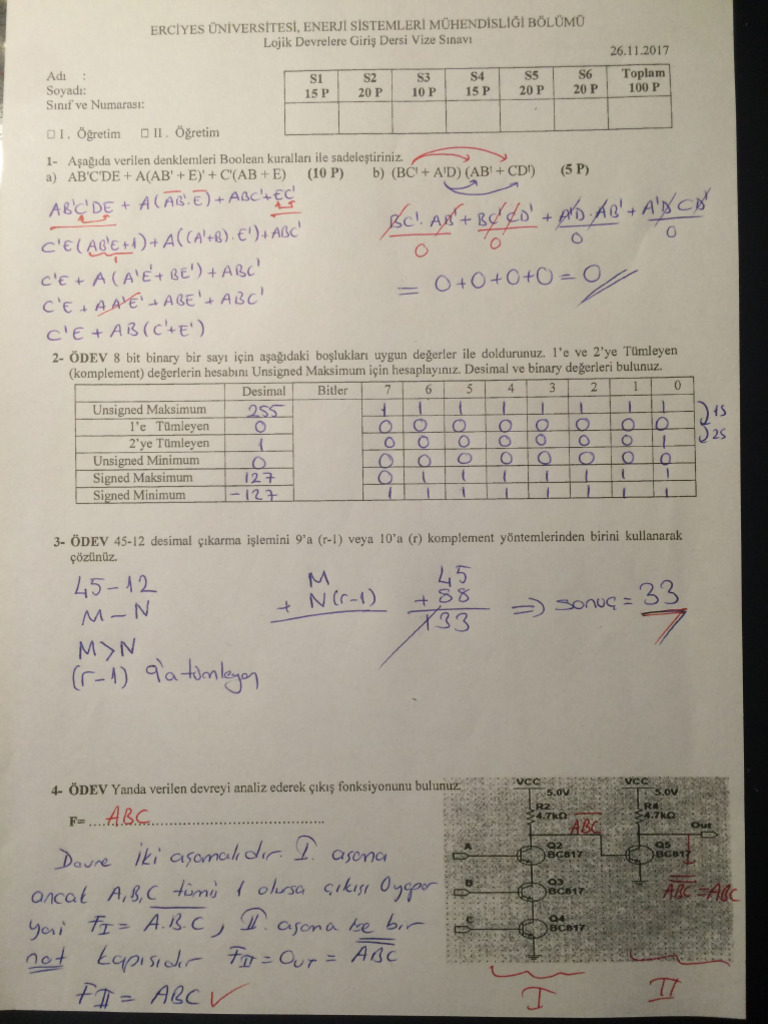 ERCİYES ÜNİVERSİTESİ, ENERJİ SİSTEMLERİ MÜHENDİSLİĞİ BÖLÜMÜ
Lojik Devrelere Giriş Dersi Vize Sınavı
26.11.2017
Adı :
Soyadı:
Sınıf ve Numarası:
S1 S2 S3 S4 S5 S6 Toplam
15 P 20 P 10 P 15 P 20 P 20 P 100 P
□ I. Öğretim □ II. Öğretim
1- Aşağıda verilen denklemleri Boolean kuralları ile sadeleştiriniz.
a) AB'C'DE + A(AB' + E)' + C'(AB + E) (10 P) b) (BC' + A'D) (AB' + CD') (5 P)
AB'C'DE + A(A̅B̅'̅.E̅) + ABC'+EC'
C'E(AB'E+1)+A((A'+B).E')+ABC'
C'E + A(A'E'+BE')+ABC'
C'E + AA'E'+ABE'+ABC'
C'E + AB(C'+E')
BC'.AB'+BC'CD'+A'D.AB'+A'DCD'
0 0 0 0
= 0+0+0+0=0
2- ÖDEV 8 bit binary bir sayı için aşağıdaki boşlukları uygun değerler ile doldurunuz. 1'e ve 2'ye Tümleyen
(komplement) değerlerin hesabını Unsigned Maksimum için hesaplayınız. Desimal ve binary değerleri bulunuz.
Desimal Bitler 7 6 5 4 3 2 1 0
Unsigned Maksimum 255 1 1 1 1 1 1 1 1
1'e Tümleyen 0 0 0 0 0 0 0 0 0
2'ye Tümleyen 1 0 0 0 0 0 0 0 1
Unsigned Minimum 0 0 0 0 0 0 0 0 0
Signed Maksimum 127 0 1 1 1 1 1 1 1
Signed Minimum -127 1 1 1 1 1 1 1 1
1S
2S
3- ÖDEV 45-12 desimal çıkarma işlemini 9'a (r-1) veya 10'a (r) komplement yöntemlerinden birini kullanarak
çözünüz.
45-12
M-N
M>N
(r-1) 9'a tümleyen
M
+ N(r-1)
45
+88
133
=> sonuç = 33
4- ÖDEV Yanda verilen devreyi analiz ederek çıkış fonksiyonunu bulunuz.
F= ....ABC....
Davre iki aşamalıdır. I. aşama
ancak A,B,C tümü 1 olursa çıkışı 0 yapar
yani F_I = A̅.B̅.C̅, II. aşama ise bir
not kapısıdır F_II = Out = A̿B̿C̿
F_II = ABC ✓
VCC 5.0V
R2
4.7kΩ
A̅B̅C̅
A
Q2
BC817
B
Q3
BC817
C
Q4
BC817
VCC 5.0V
R4
4.7kΩ
Out
Q5
BC817
A̿B̿C̿=ABC
I
II